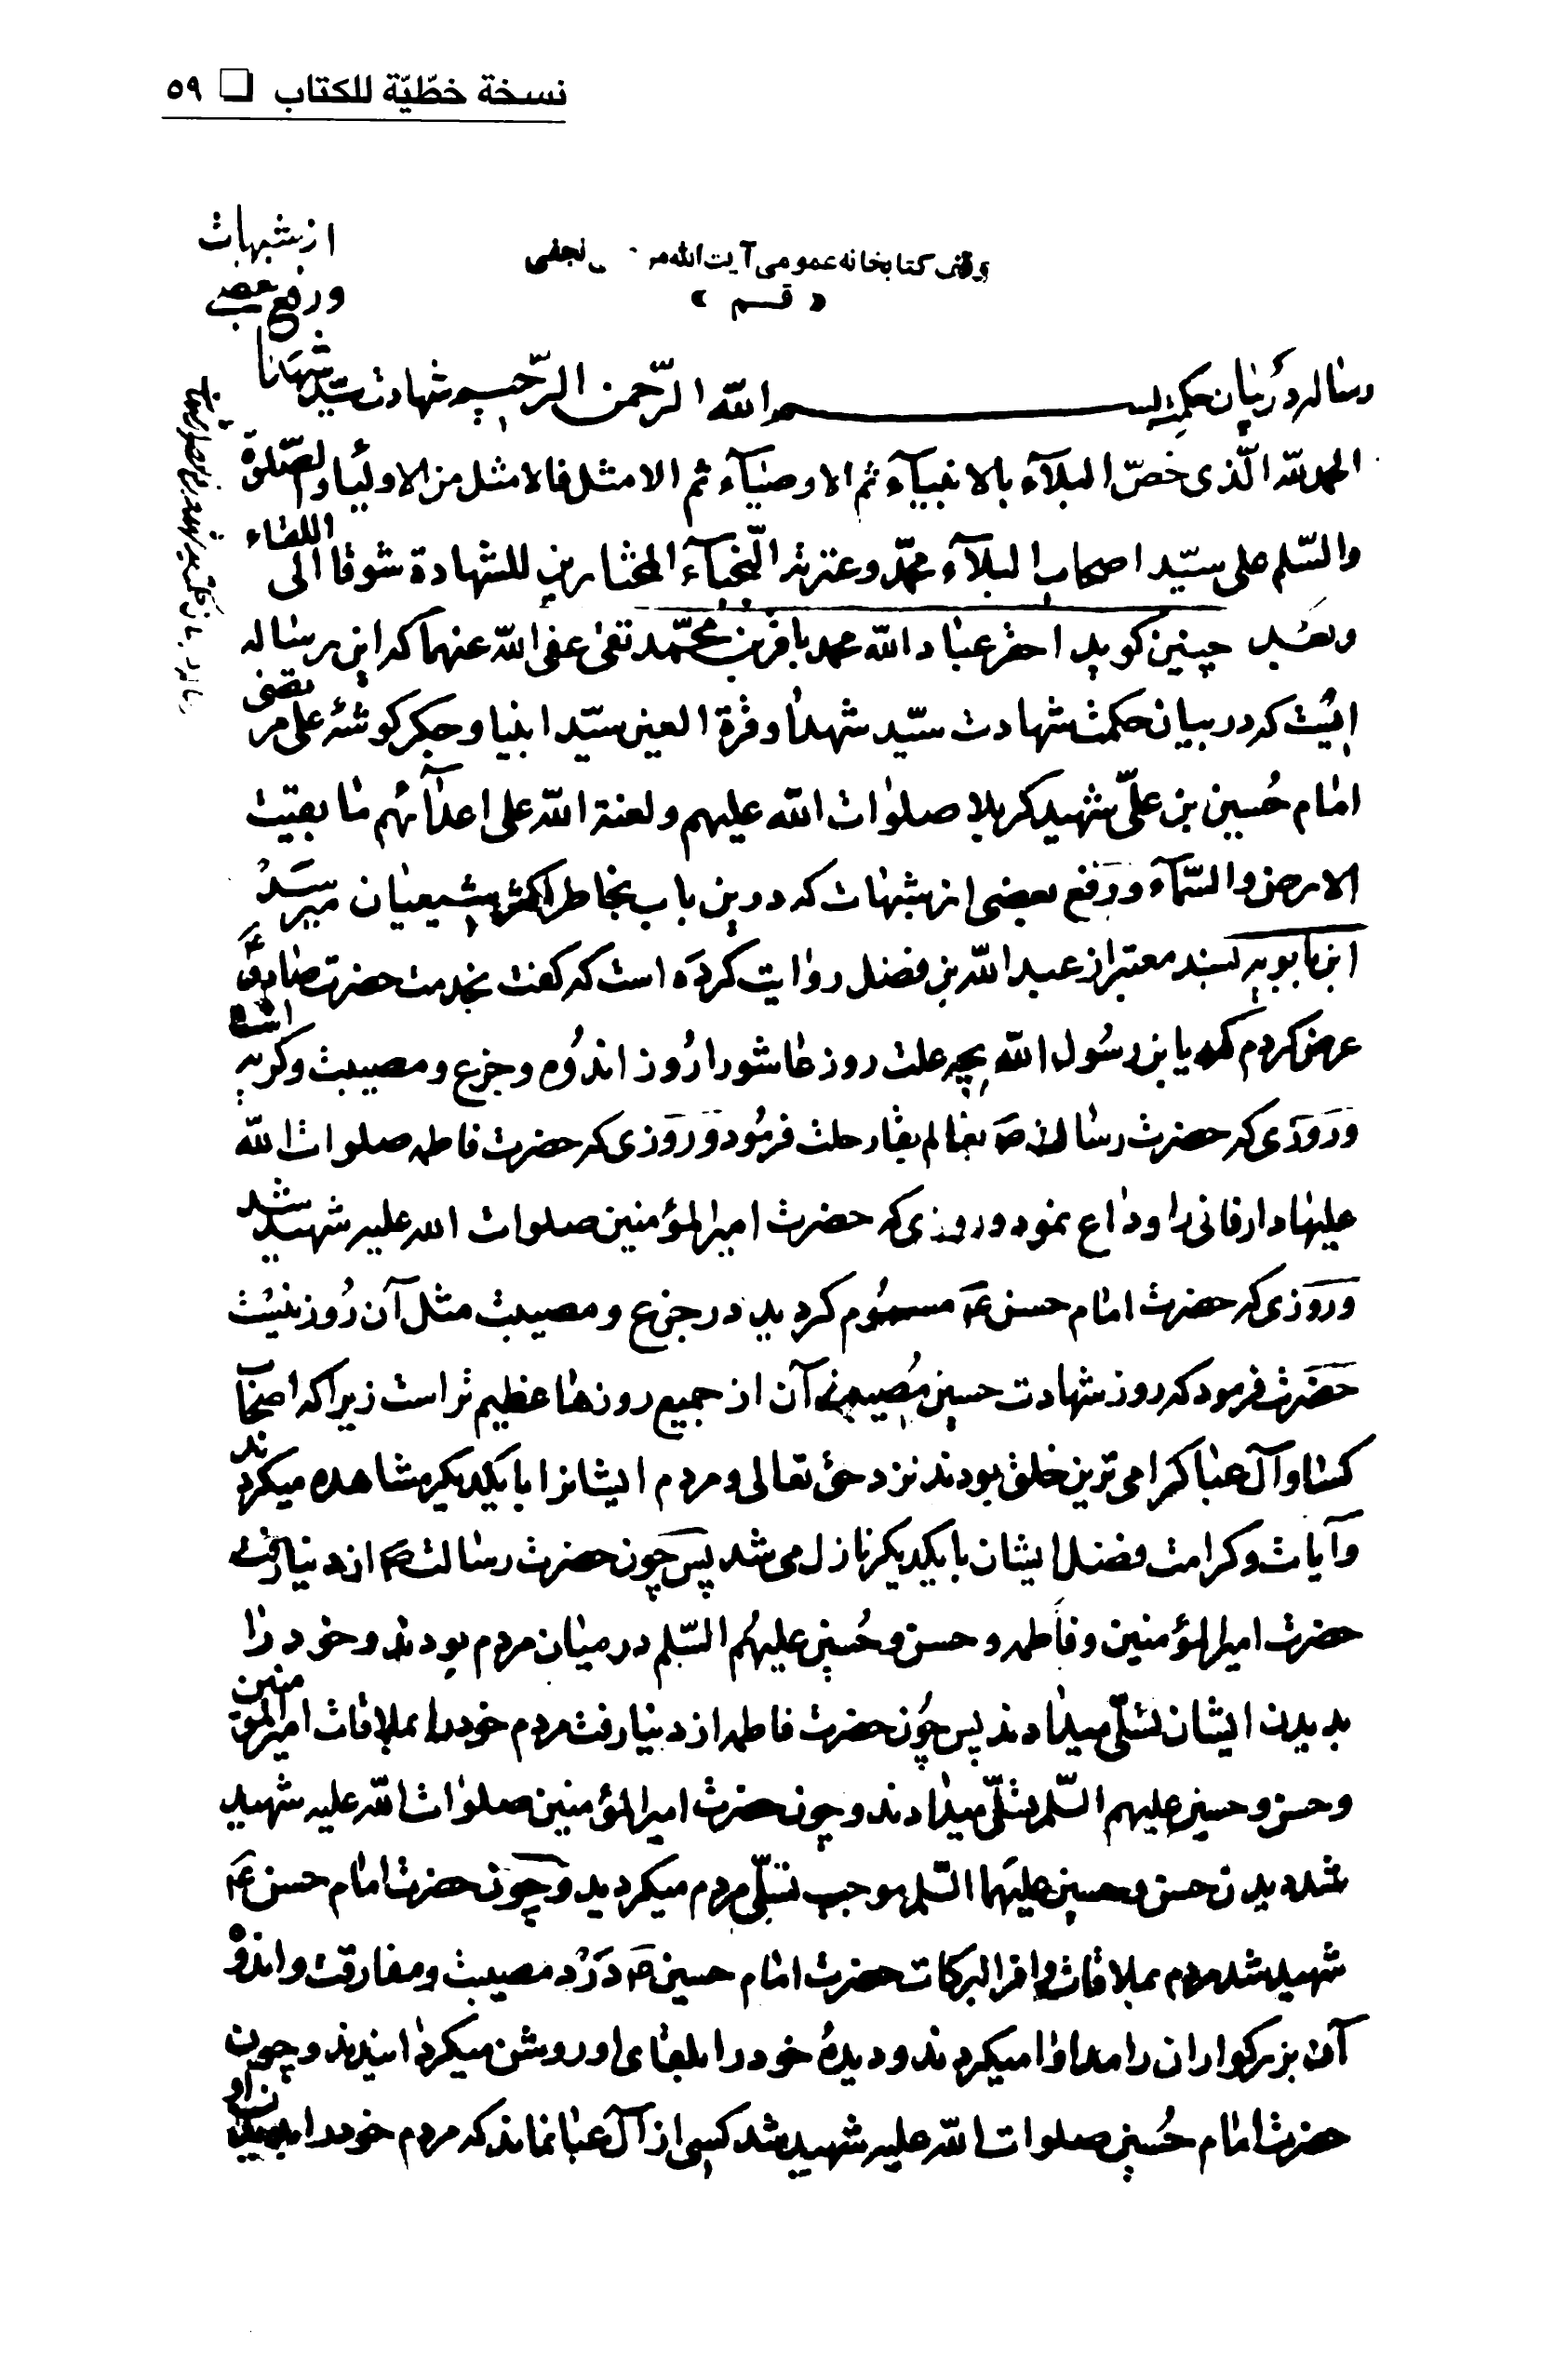 نسخة خطّيّة للكتاب ❏ ٥٩
از شبهات
ورفع بعضی
وقف کتابخانه عمومی آیت الله مر نجفی
« قسم »
رساله در بیان حکمت بسم الله الرّحمن الرّحیم شهادت سیّد شهدا
الحمد لله الّذی خصّ البلآء بالانبیآء ثم الاوصیآء ثم الامثل فالامثل من الاولیا والصّلوة
والسّلم علی سیّد اصحاب البلآء محمّد وعترته النّجبآء المختارین للشهادة شوقا الی اللقاء
وبعد چنین کوید احقر عباد الله محمد باقر بن محمّد تقی عفی الله عنهما که این رساله
ایست که در بیان حکمت شهادت سیّد شهدا وقرة العین سیّد انبیا وجکر کوشهٔ علی مرتضی
امام حُسین بن علیّ شهید کربلا صلوات الله علیهم ولعنة الله علی اعدآئهم ما بقیت
الارض والسّمآء ورفع بعضی از شبهات که درین باب بخاطر اکثر شیعیان میرسَدْ
ابن بابویه بسند معتبر از عبد الله بن فضل روایت کرده است که کفت بخدمت حضرت صادق ع
عرض کردم که یابن رسُول الله بچه علت روز عاشورا رُوز اندوُه وجزع ومصیبت وکریه است
وروزی که حضرت رسالت ص بعالم بقا رحلت فرمُود وروزی که حضرت فاطمه صلوات الله
علیها دار فانی را وداع نمود وروزی که حضرت امیر المؤمنین صلوات الله علیه شهید شد
وروزی که حضرت امام حسن ع مسمُوم کردید در جزع ومصیبت مثل آن رُوز نیست
حضرت فرمود که روز شهادت حسین مُصیبت آن از جمیع روزها عظیم تر است زیرا که اصحاب
کسا وآل عبا کرامی ترین خلق بودند نزد حق تعالی ومردم ایشانرا با یکدیکر مشاهده میکردند
وآیات وکرامت وفضل ایشان با یکدیکر نازل می شد پس چون حضرت رسالت ص از دنیا رفت
حضرت امیر المؤمنین وفاطمه وحسن وحُسین علیهُم السّلم در میان مردم بودند وخود را
بدیدن ایشان تسلّی میدادند پس چُون حضرت فاطمه از دنیا رفت مردم خود را بملاقات امیر المؤمنین
وحسن وحسین علیهم السّلم تسلّی میدادند وچون حضرت امیر المؤمنین صلوات الله علیه شهید
شد دیدن حسن وحسین علیهَما السّلم موجب تسلّی مردم میکردید وچون حضرت امام حسن ع
شهید شد مردم بملاقات وافر البرکات حضرت امام حسین ع دَرْد مصیبت ومفارقت واندوه
آن بزرکواران را مداوا میکردند ودیدهٔ خود را بلقای او روشن میکردانیدند وچون
حضرت امام حُسین صلوات الله علیه شهید شد کسی از آل عبا نماند که مردم خود را بدیدن او